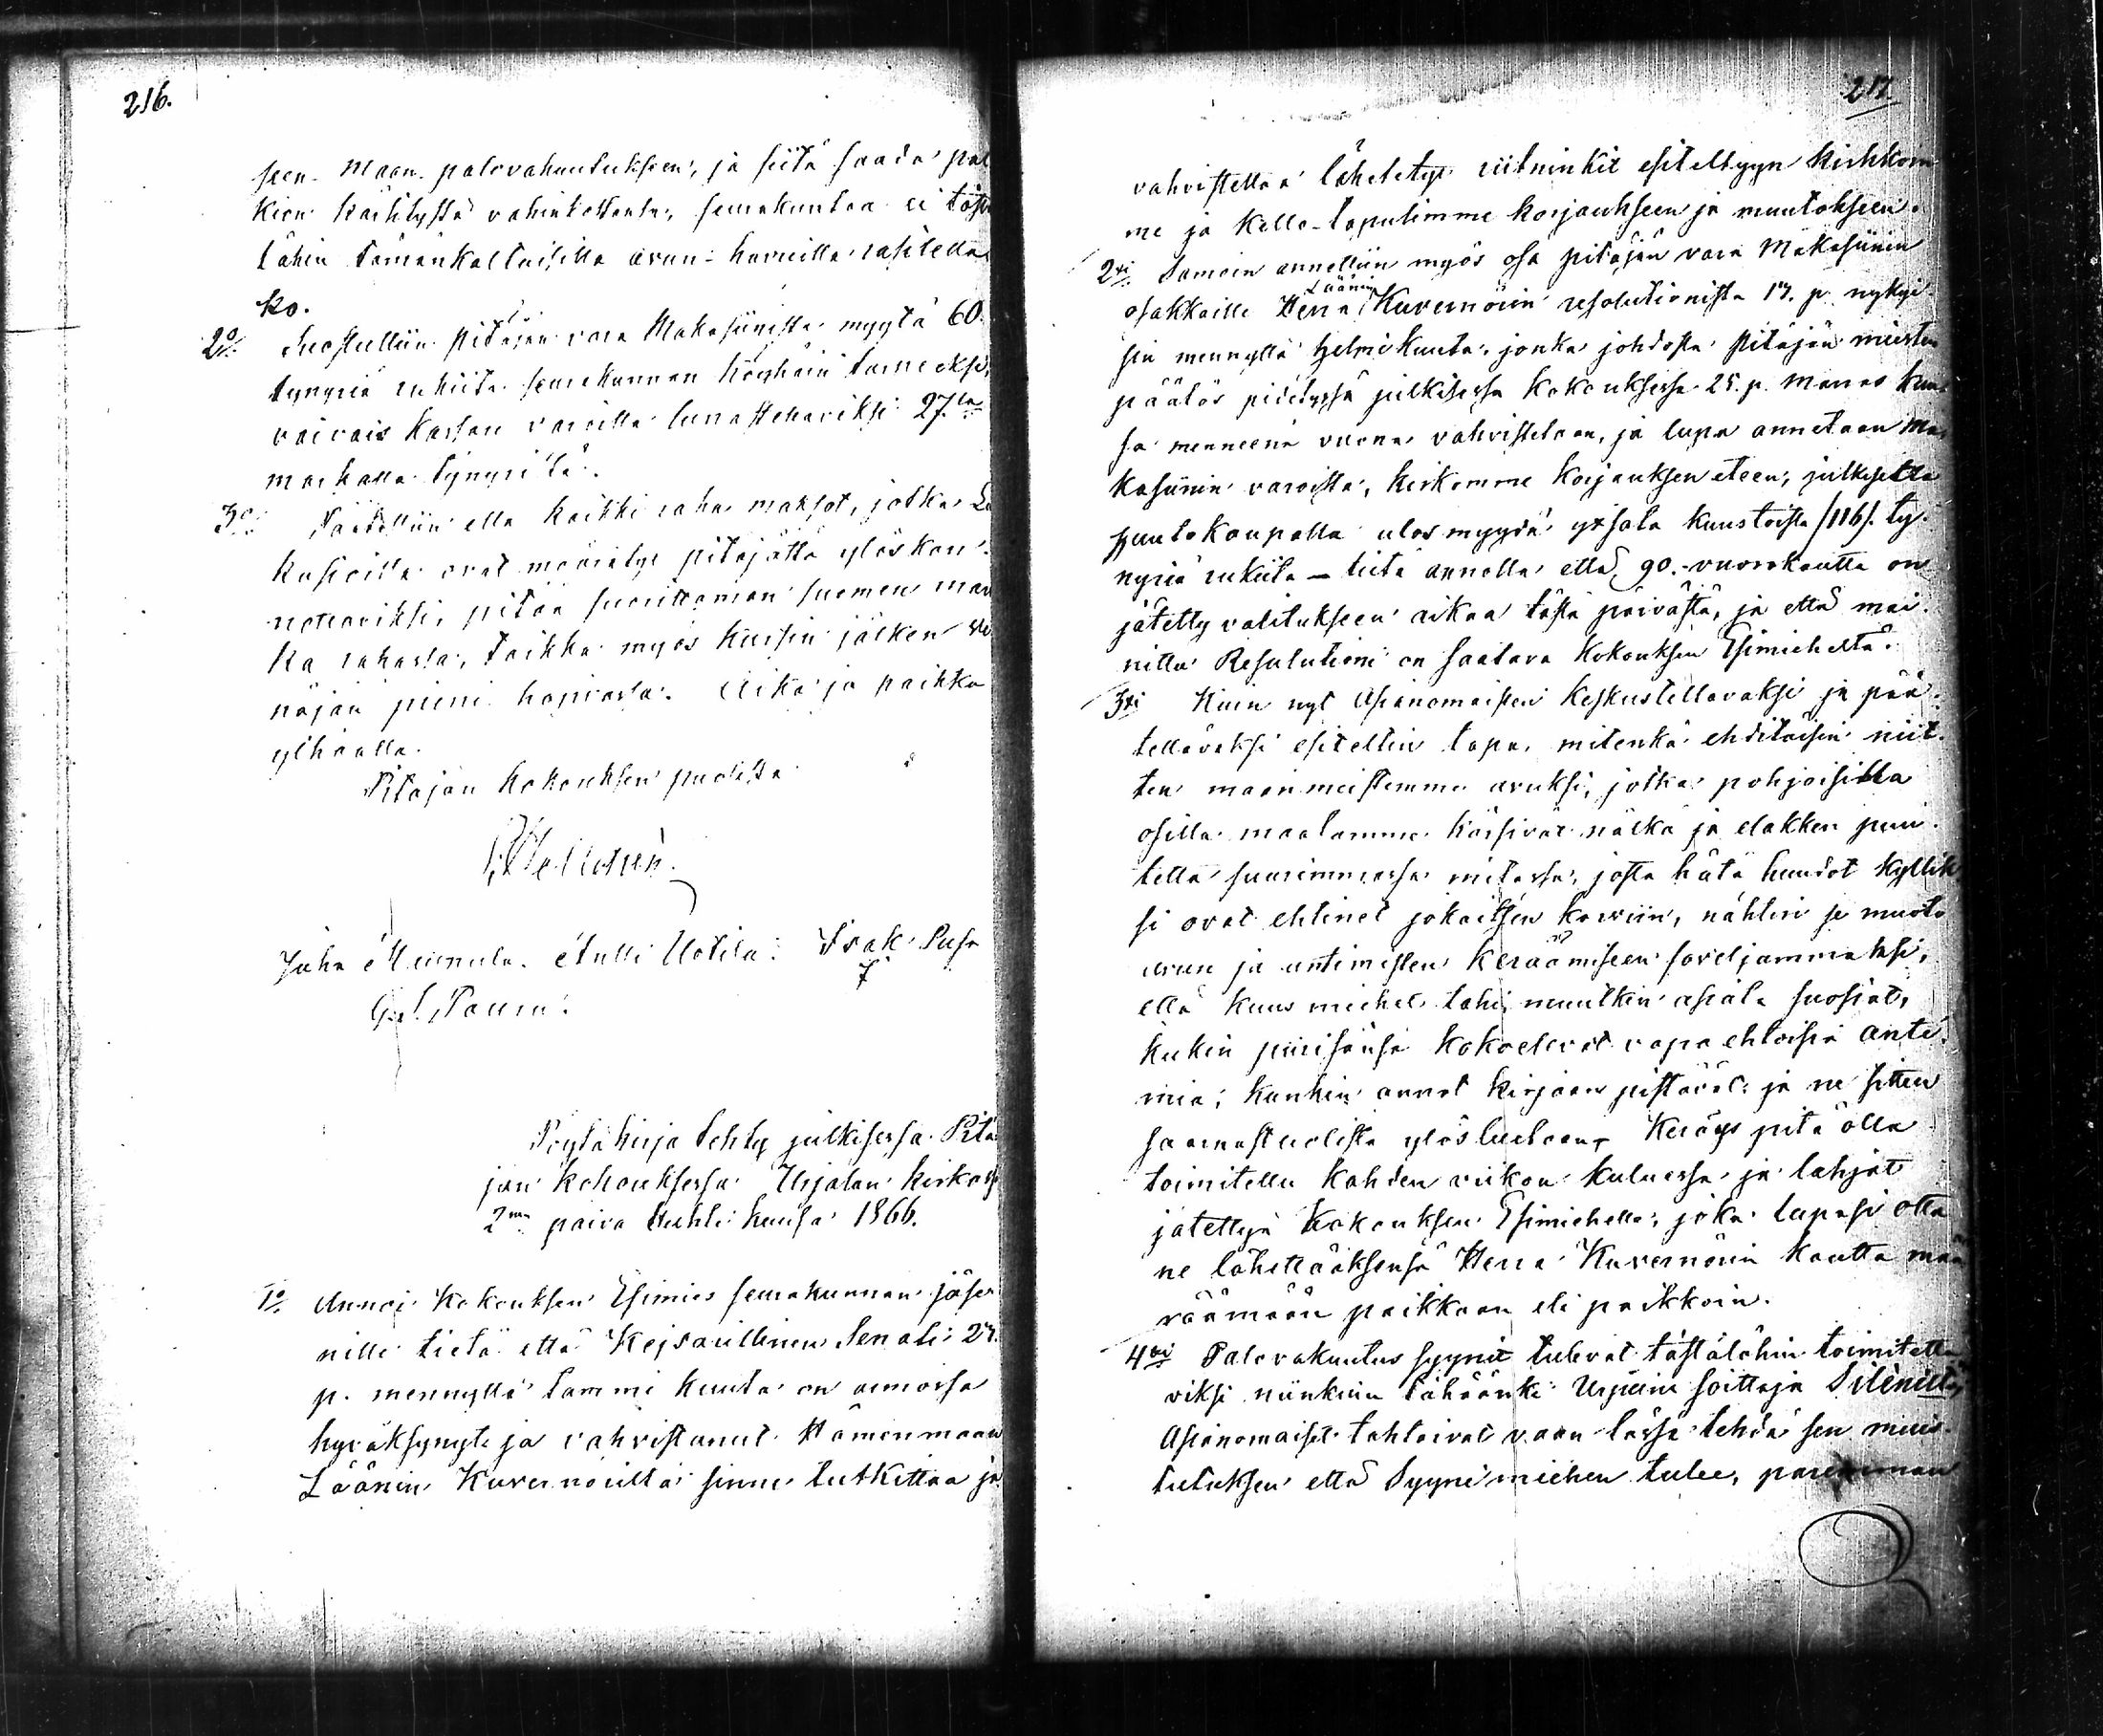 216.
seen Maan palovakuutukseen, ja siitä saada pal
kien kärsityssä vahinkossansa, seurakuntaa ei täst
lähin tämänkaltaisilla avun-haveilla rasitetta
ko.
2o/. Suostuttiin Pitäjän vara Makasiinista myytä 60.
tynyriä rukiita seurakunnan köyhäin tarpeeksi,
vaivais kassan varoilla lunastettaviksi 27.lä
markalla tynyriltä.
3o/. Päätettiin että kaikki raha maksot, jotka Lu
kusioilla ovat määrätyt pitäjältä ylöskan-
nettaviksi, pitää suorittaman Suomen mark
ka rahassa, taikka myös kurssin jälken Ve
näjän pieni hopiassa. Aika ja paikka
ylhäällä.
Pitäjän kokouksen puolesta
Juha Mennula. Antti Uotila. Isak Pusa
G. F. Paum.
Pöytäkirja tehty julkisessa Pitä
jän kokouksessa Urjalan kirkossa
2na päivä Huhti kuusa 1866.
1o/. Annoi Kokouksen Esimies seurakunnan jäse
nille tietä että Keisarillinen Senati 27.
p. mennyttä tammi kuuta on armossa
hyväksynyt ja vahvistanut Hämenmaan
Läänin Kuvernöriltä sinne tutkittaa ja
217.
vahvistettaa lähetetyt riitninkit esiteltyyn kirkkom
me ja kello-tapulimme korjaukseen ja muutokseen.
2xi Samoin annettiin myös osa pitäjän vara Makasiinin
osakkaille Herra Läänin Kuvernörin resolutionista 17. p. nykyi-
sin mennyttä Helmi kuuta, jonka johdosta Pitäjän miesten
päätös pidetyssä julkisessa kokouksessa 25. p. Marras kuu-
sa menneenä vuonna vahvistetaan, ja lupa annetaan Ma-
kasiinin varoista, kirkomme korjauksen eteen, julkisella
huutokaupalla ulosmyydä yxsata kuustoista /116/. ty-
nyriä rukiita – tietä annettu että 90.-vuorokautta on
jätetty valitukseen aikaa tästä päivästä, ja että mai-
nittu Resolutioni on saatava Kokouksen Esimieheltä.
3xi Kuin nyt Asianomaisten keskusteltavaksi ja pää-
tettäväksi esiteltiin tapa, mitenkä ehdittäisiin niit-
ten maanmeistemme avuksi, jotka pohjoisilla
osilla maatamme kärsivät nälkä ja elakken puu-
tetta suurimmassa mitassa, josta hätä huudot kyllik
si ovat ehtinet jokaitsen korviin, nähtin se muoto
avun ja antimisten keräämiseen soveljammaksi,
että kuus miehet tahi muutkin asiata suosiat,
kukin piirisänsä kokoelevat vapaehtoisia anti-
mia, kunkin annot kirjaan pistävät ja ne sitten
saarnastuolista ylösluetaan. Keräys pitä olla
toimitettu kahden viikon kuluessa ja lahjat
jätettyä Kokouksen Esimiehelle, joka lupasi otta
ne lähettääksensä Herra Kuvernörin kautta mää
räämään paikkaan eli paikkoin.
4xi Palovakuutus syynit tulevat tästälähin toimitetta
viksi niinkuin tähäänki Urjuin soittaja
Asianomaiset tahtoivat vaan tässä tehdä sen muis-
tutuksen että Syynimiehen tulee, paremman